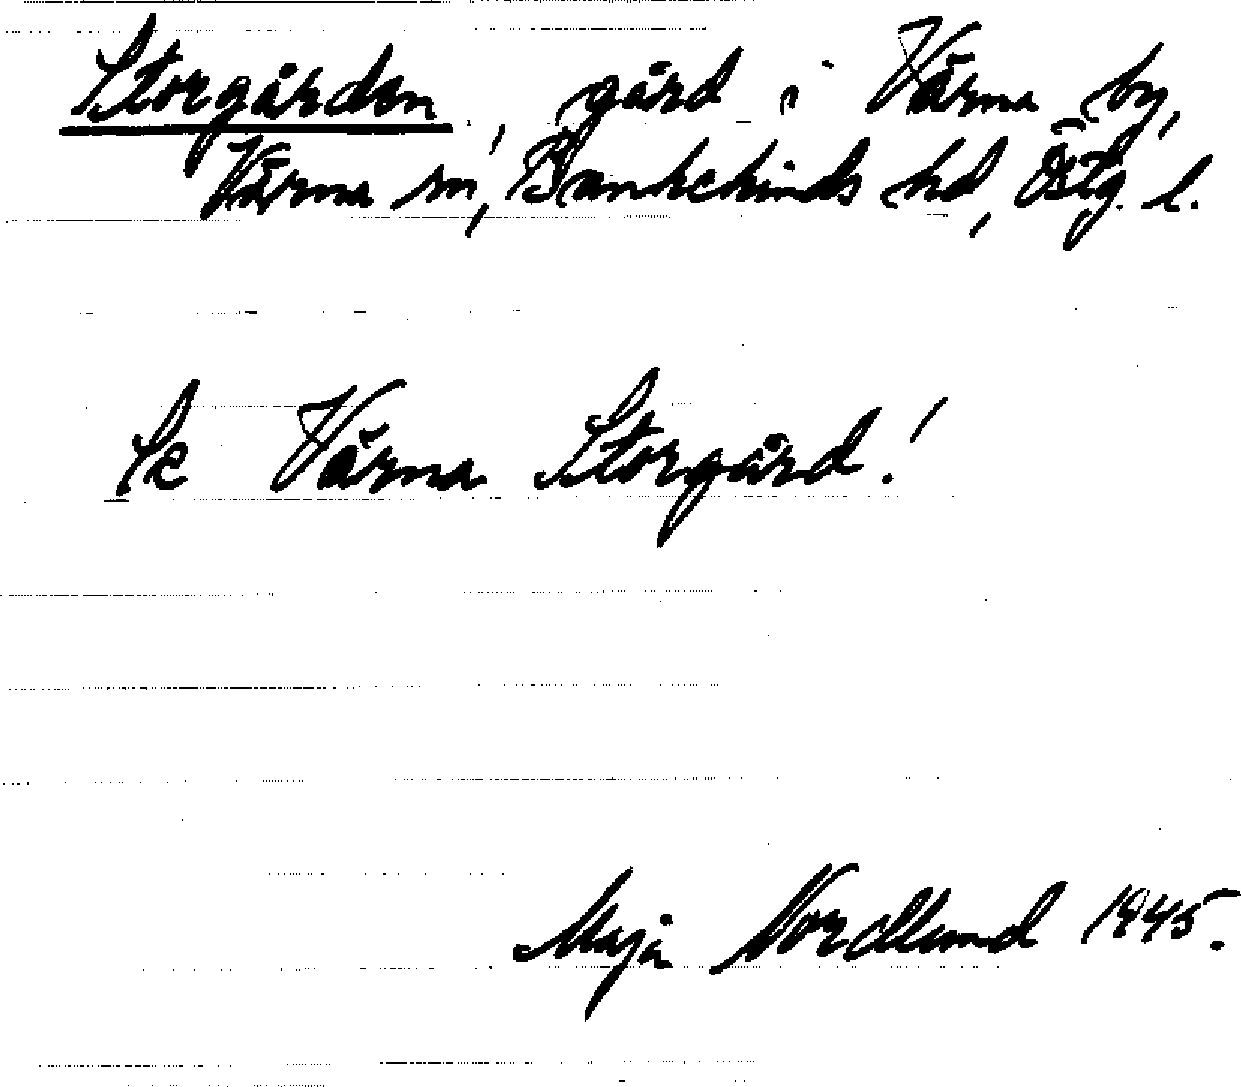 Storgården, gård i Värna by,
Värna sn, Bankekinds hd, Östg. l.
Se Värna Storgård!
Maja Nordlund 1945.